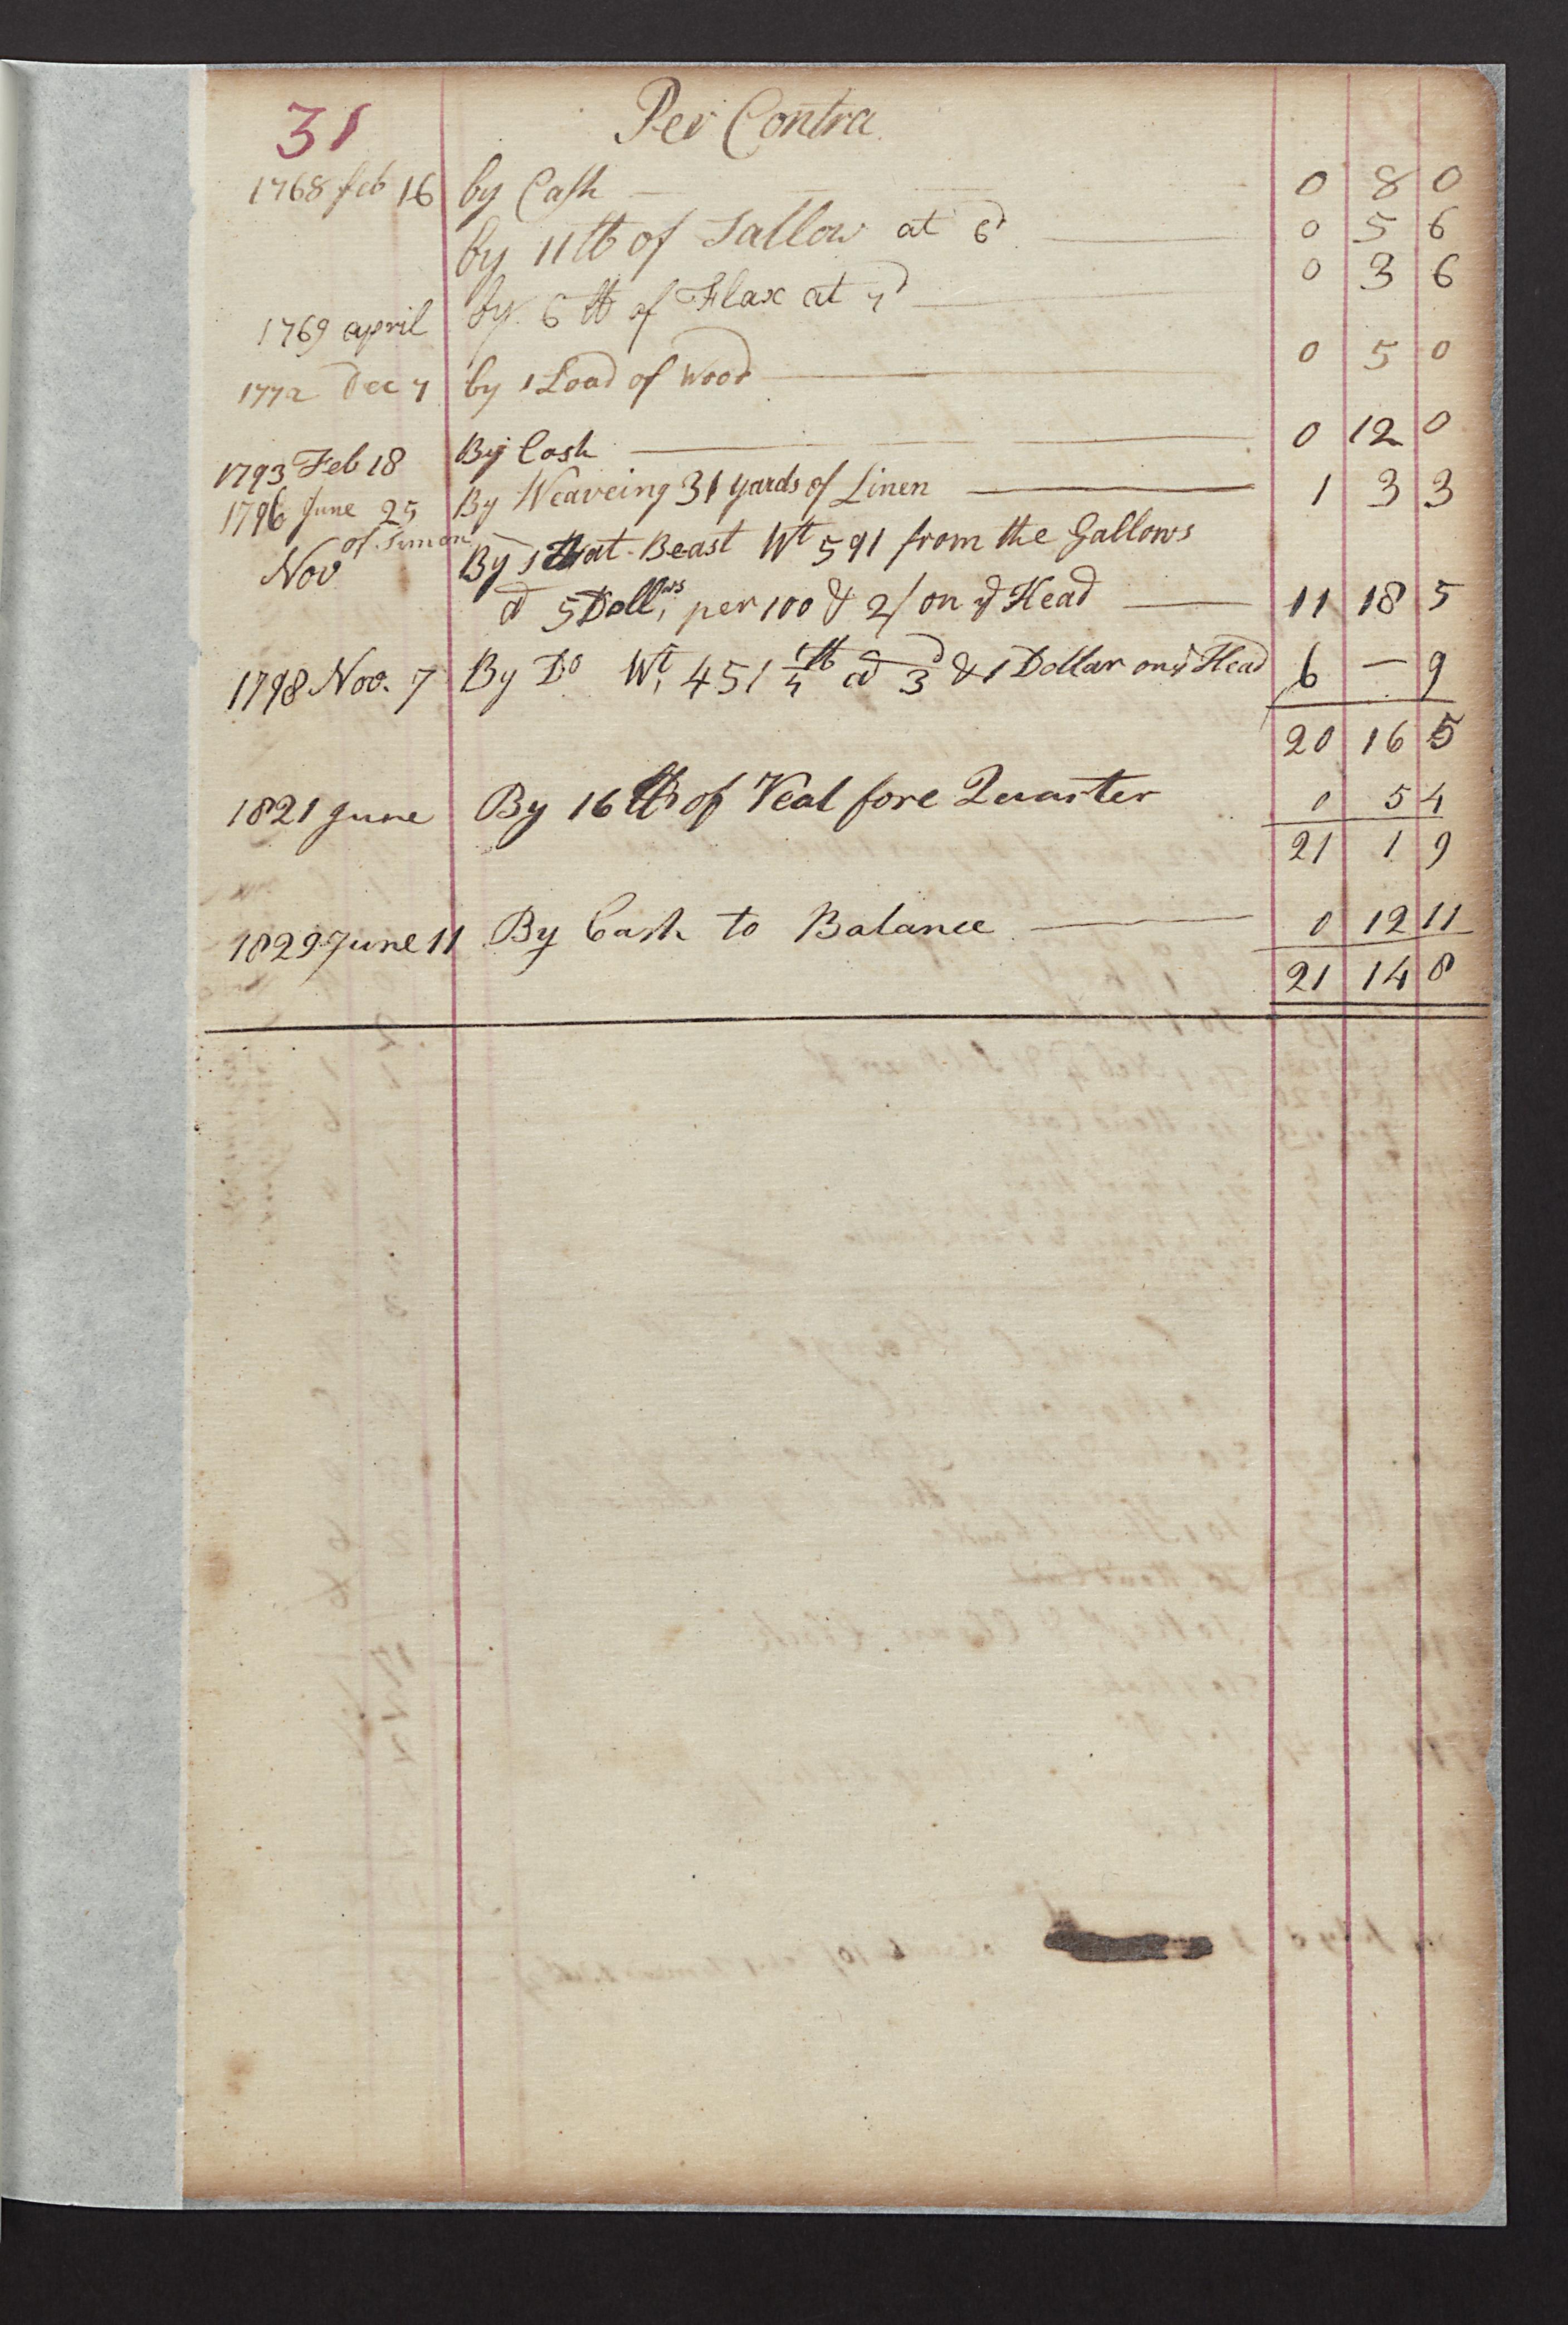 31 Per Contra
1768 feb 16 by Cash 0 8 0
by 11 ℔ of Tallow at 6d 0 5 6
by 6 ℔ of Flax at 7d 0 3 6
1769 april
1772 Dec 7 by 1 Load of Wood 0 5 0
1793 Feb 18 By Cash 0 12 0
1796 June 25 By Weaveing 31 yards of Linen 1 3 3
of Simon
Nov By 1 Beast Wt 591 from the Gallows
@ 5 Dollrs per 100 & 2/ on ye Head 11 18 5
1798 Nov. 7 By Do Wt 451 ℔ @ 3d & 1 Dollar on ye Head 6 — 9
20 16 5
1821 June By 16 ℔ of Veal fore Quarter 0 5 4
21 1 9
1829 June 11 By Cash to Balance 0 12 11
21 14 8